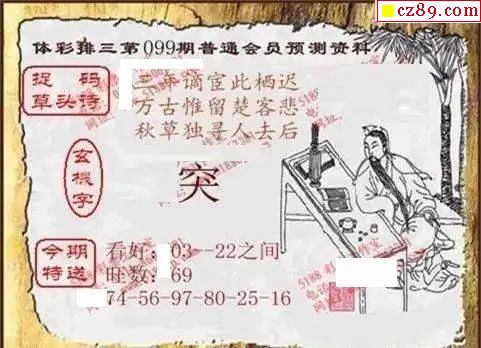 cz89.com
体彩排三第099期普通会员预测资料
捉码
草头诗
年谪宦此栖迟
万古惟留楚客悲
秋草独寻人去后
玄機字
突
今期
特送
看好：03--22之间
旺数：69
74-56-97-80-25-16